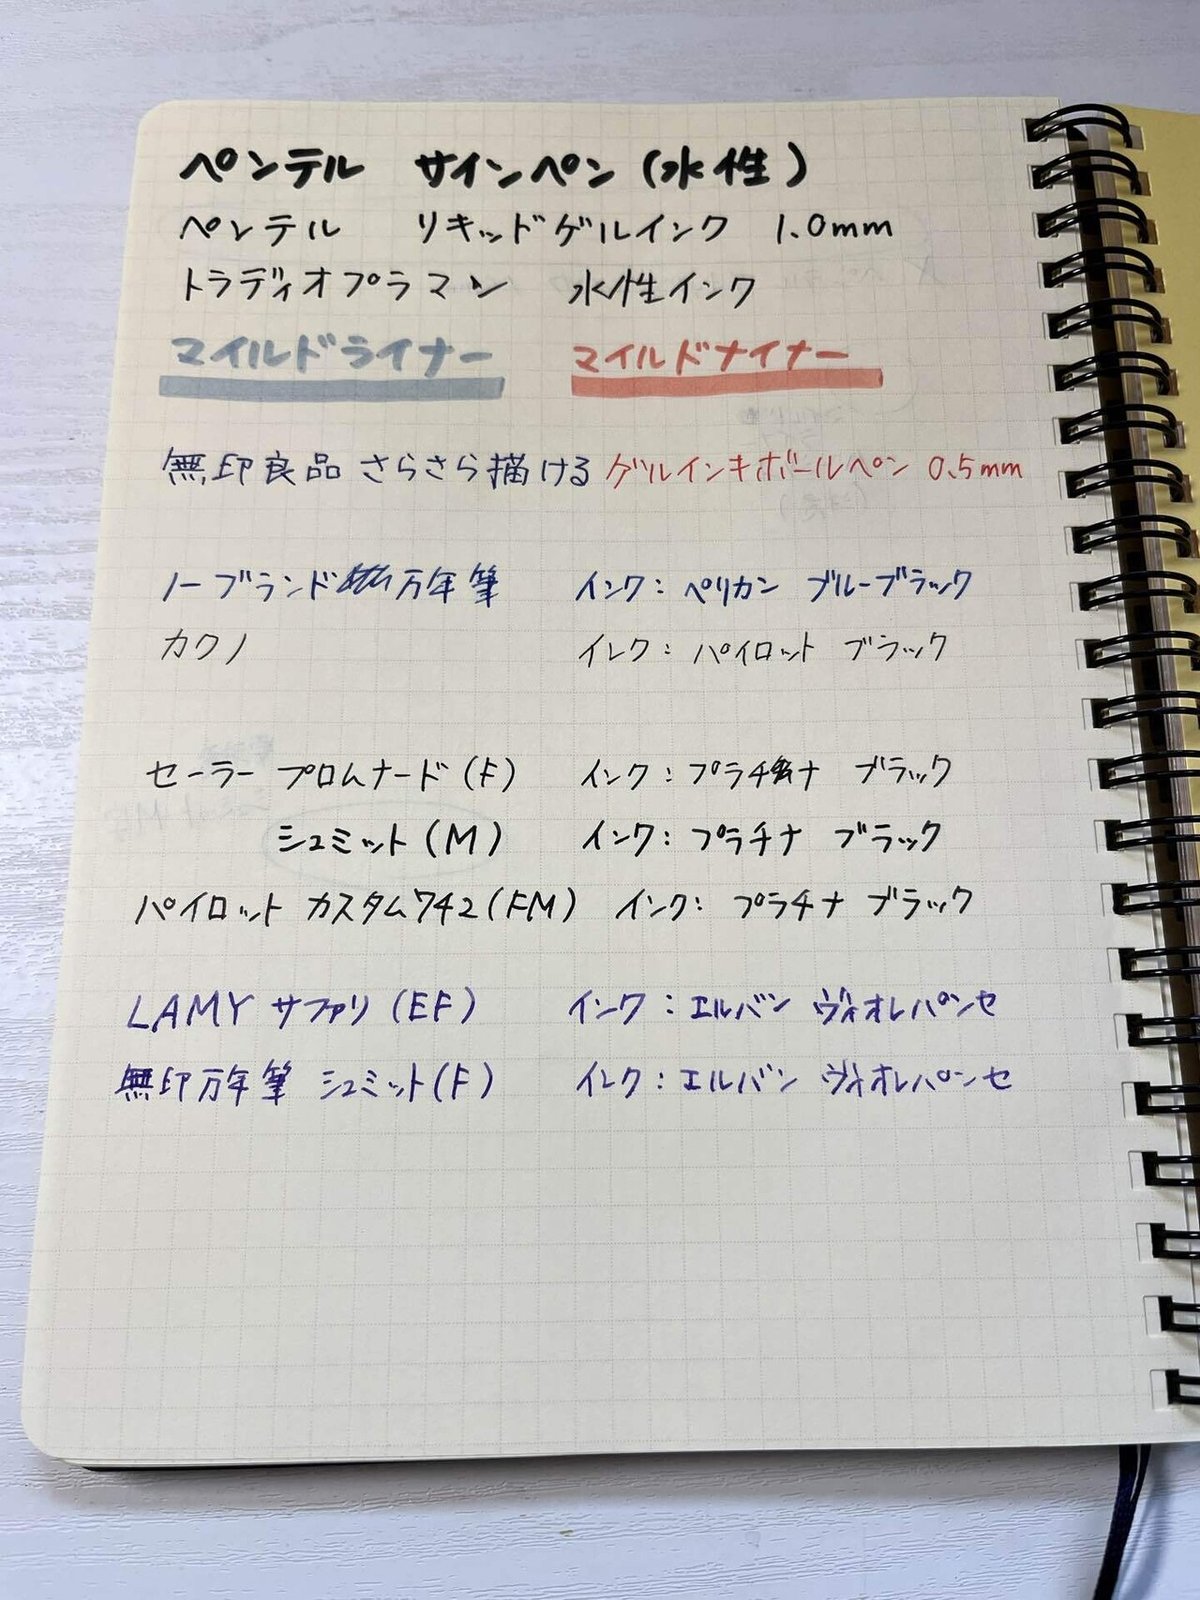 ペンテル サインペン(水性)
ペンテル リキッドゲルインク 1.0mm
トラディオプラマン 水性インク
マイルドライナー マイルドナイナー
無印良品 さらさら描ける ゲルインキボールペン 0.5mm
ノーブランド万年筆 インク: ペリカン ブルーブラック
カクノ インク: パイロット ブラック
セーラー プロムナード(F) インク: プラチナ ブラック
シュミット(M) インク: プラチナ ブラック
パイロット カスタム742(FM) インク: プラチナ ブラック
LAMY サファリ(EF) インク: エルバン ヴィオレパンセ
無印万年筆 シュミット(F) インク: エルバン ヴィオレパンセ